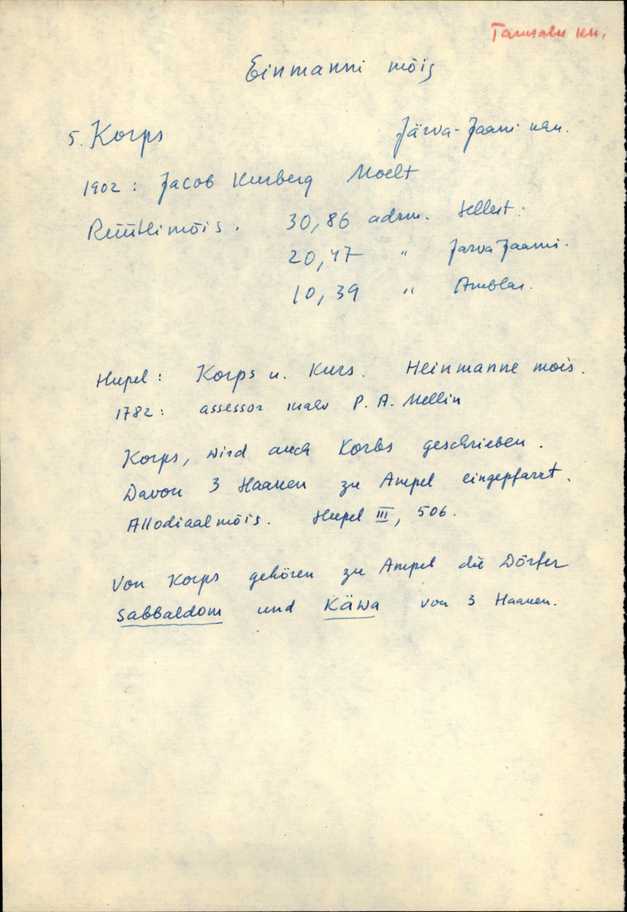 Tamsalu kn.
Einmanni mõis
5. Korps Järva-Jaani khn.
1902: Jacob Kurberg
Rüütlimõis. 30,86 adrm. sellest:
20,47 " Järva Jaani.
10,39 " Amblas.
Hupel: Korps u. Kurs. Heinmanne mois.
1782: assessor P. A. Mellin
Korps, wird auch Korbs geschrieben.
Davon 3 Haacken zu Ampel eingepfarrt.
Allodiaalmõis. Hupel III, 506.
Von Korps gehören zu Ampel die Dörfer
Sabbaldom und Käwa von 3 Haacken.